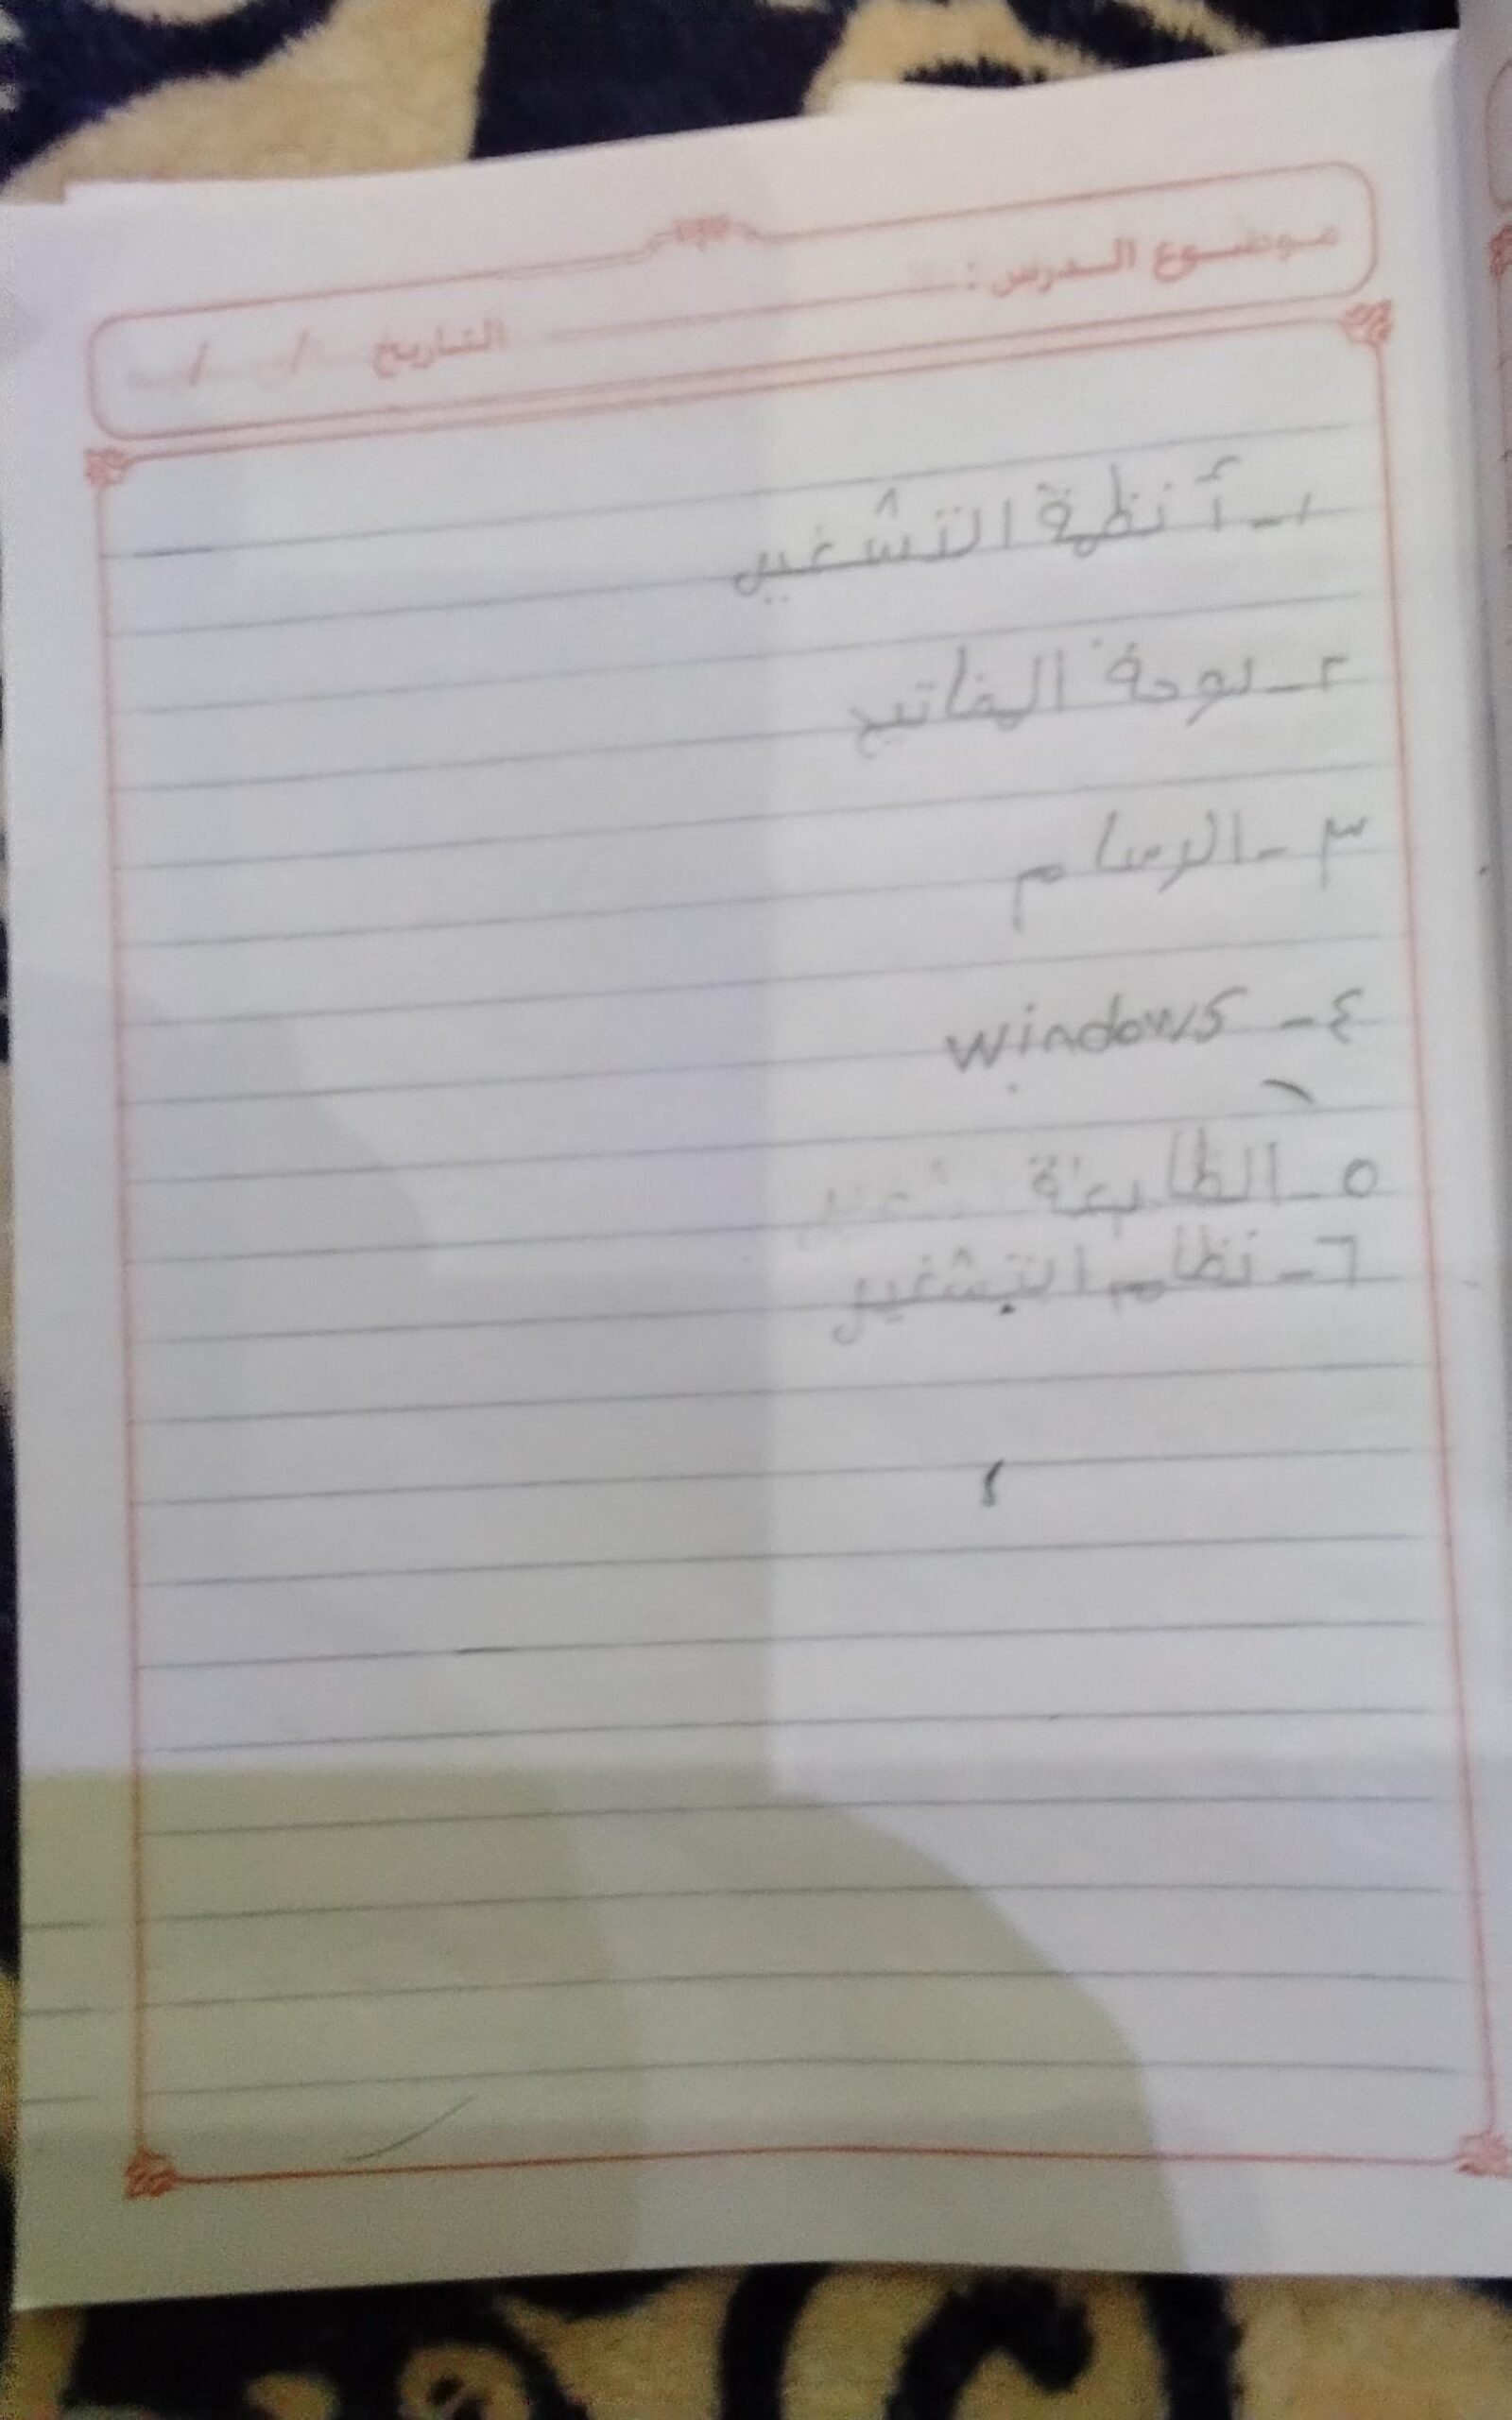 موضوع الدرس : التاريخ / /
١- أنظمة التشغيل
٢- لوحة المفاتيح
٣- الرسام
٤- windows
٥- الطابعة
٦- نظام التشغيل